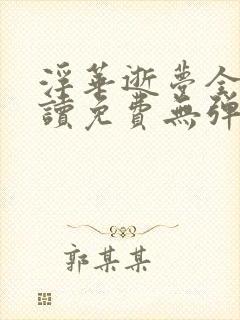 淫華逝夢全
讀免費無彈
郭某某